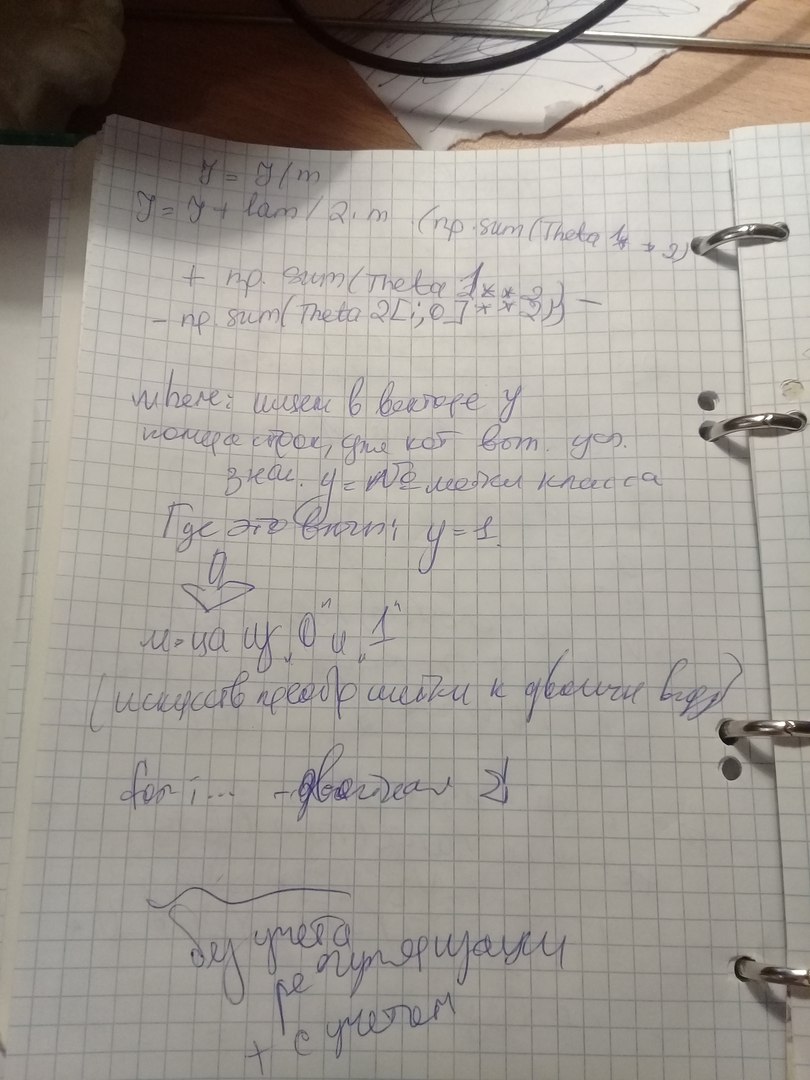 J = J/m
J = J + lam / 2 · m · (np.sum(Theta 1 * * 2)
+ np. sum(Theta 1 * * 2) –
– np. sum(Theta 2[:,0] * * 2))
where: ищем в векторе y
номера строк, для кот вып. усл.
знач. y = № метки класса
Где это вып: y = 1.
м-ца из „0" и „1"
(искусств преобр метки к двоичн виду)
for i ... – двойная Σ
без учета
регуляризации
+ с учетом